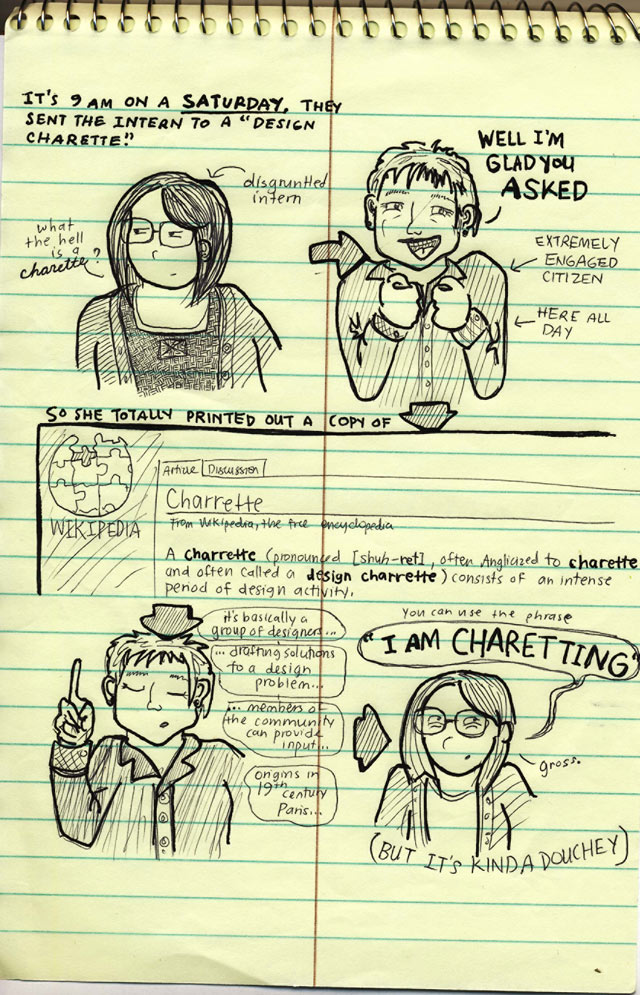 IT'S 9 AM ON A SATURDAY. THEY
SENT THE INTERN TO A "DESIGN
CHARETTE."
disgruntled
intern
what
the hell
is a
charette?
WELL I'M
GLAD YOU
ASKED
EXTREMELY
ENGAGED
CITIZEN
HERE ALL
DAY
SO SHE TOTALLY PRINTED OUT A COPY OF
WIKIPEDIA
Article Discussion
Charrette
From Wikipedia, the free encyclopedia
A charrette (pronounced [shuh-ret], often Anglicized to charette
and often called a design charrette) consists of an intense
period of design activity.
it's basically a
group of designers...
... drafting solutions
to a design
problem...
... members of
the community
can provide
input...
origins in
19th century
Paris...
You can use the phrase
"I AM CHARETTING"
gross.
(BUT IT'S KINDA DOUCHEY)